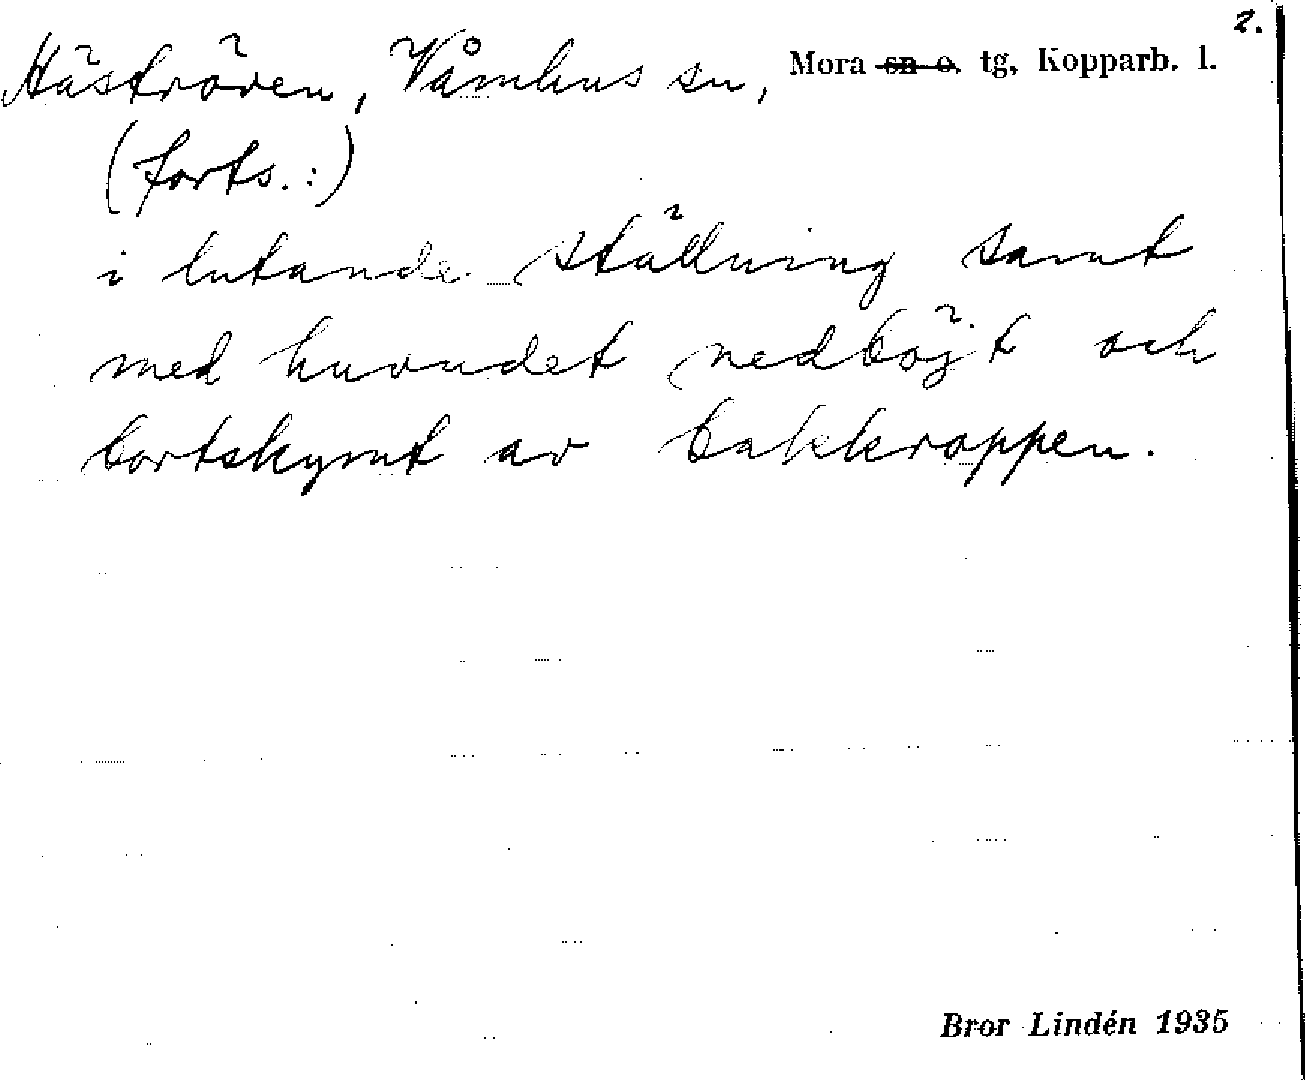 2.
Häströven, Våmhus sn, Mora sn o. tg, Kopparb. l.
(forts.:)
i lutande ställning samt
med huvudet nedböjt och
bortskymt av bakkroppen.
Bror Lindén 1935